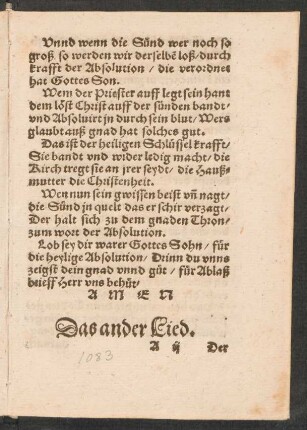 Vnnd wenn die Sünd wer noch so
groß so werden wir derselbē loß/durch
krafft der Absolution / die verordnet
hat Gottes Son.
Wem der Priester auff legt sein hant
dem löst Christ auff der sünden bandt/
vnd Absoluirt jn durch sein blut/ Wers
glaubt auß gnad hat solches gut.
Das ist der heiligen Schlüssel krafft/
Sie bandt vnd wider ledig macht/die
Kirch tregt sie an jrer seydt/ die Hauß-
mutter die Christenheit.
Wen nun sein gwissen beist vñ nagt/
die Sünd jn quelt das er schir verzagt/
Der halt sich zu dem gnaden Thron/
zum wort der Absolution.
Lob sey dir warer Gottes Sohn/ für
die heylige Absolution/ Drinn du vnns
zeigst dein gnad vnnd güt / für Ablaß
brieff Herr vns behüt/
A M E N
Das ander Lied.
A ij Der
1083